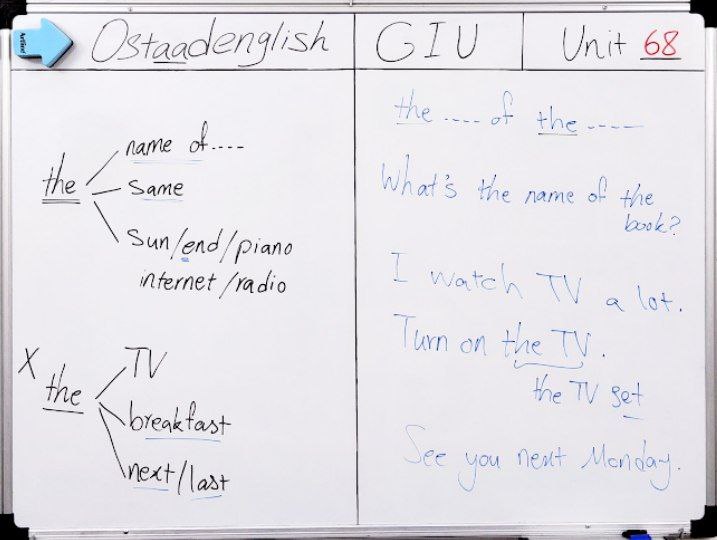 Ostaadenglish
GIU
Unit 68
the
name of....
same
sun/end/piano
internet/radio
X the
TV
breakfast
next/last
the .... of the ----
What's the name of the
book?
I watch TV a lot.
Turn on the TV.
the TV set
See you next Monday.